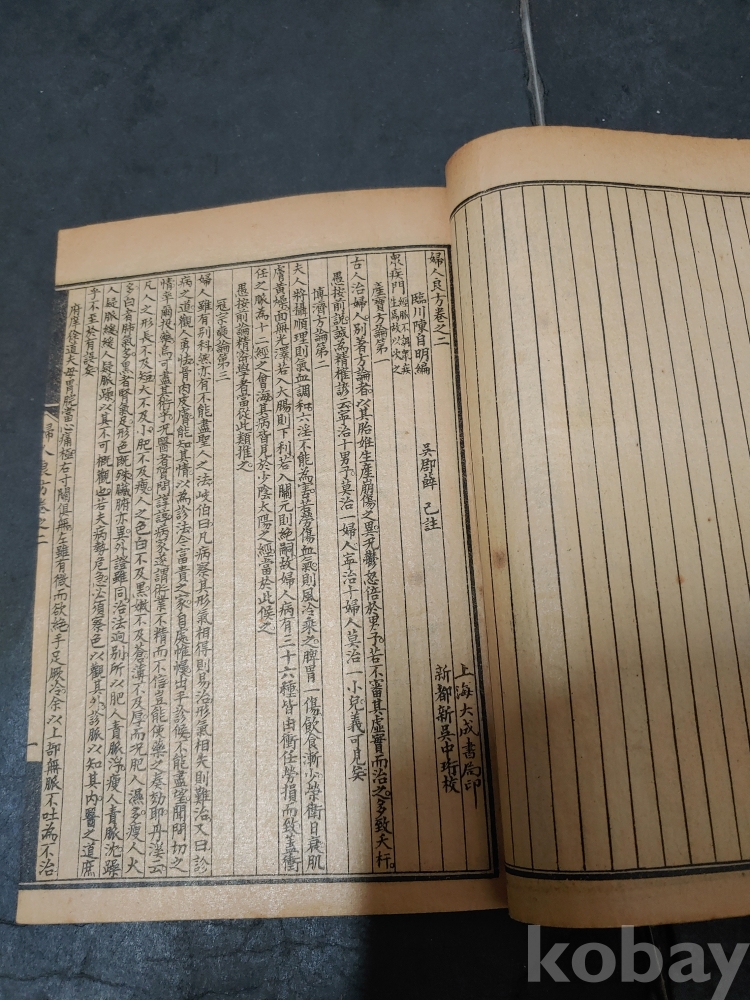 婦人良方卷之二
臨川陳自明編
吳郡薛己註
上海大成書局印
新都新吳中珩校
衆疾門
產寶方論第一
古人治婦人別著方論者以其胎姙生產崩傷之異況鬱怒倍於男子若不審其虛實而治之多致夭枉
愚按前說誠為精權諺云寧治十男子莫治一婦人寧治十婦人莫治一小兒義可見矣
博濟方論第二
夫人將攝順理則氣血調和六淫不能為害若勞傷血氣則風冷乘之脾胃一傷飲食漸少榮衛日衰肌
膚黃燥面無光澤若入大腸則下利若入關元則絶嗣故婦人病有三十六種皆由衝任勞損而致蓋衝
任之脈為十二經之會海其病皆見於少陰太陽之經當於此候之
愚按前論精密學者當從此類推之
寇宗奭論第三
婦人雖有別科然亦有不能盡聖人之法岐伯曰凡病察其形氣相得則易治形氣相失則難治又曰診
病之道觀人勇怯骨肉皮膚能知其情以為診法今富貴之家自處帷幔出手診候不能盡望聞問切之
情卒爾投藥焉可盡其術乎況醫者質問諄諄病家遂謂術業不精而不信豈能使藥之奏効耶丹溪云
凡人之形長不及短大不及小肥不及瘦人之色白不及黑嫩不及蒼薄不及厚而況肥人濕多瘦人火
多白者肺氣多黑者腎氣足形色既殊臟腑亦異外證雖同治法逈別所以肥人責脈浮瘦人責脈沈躁
人疑脈緩緩人疑脈躁以其不可概觀也若夫病勢危急必須察色以觀其外診脈以知其內醫之道庶
乎不至於有誤矣
府庠徐道夫母胃脘當心痛極右寸關俱無左雖有微而欲絶手足厥冷余以上部無脈不吐為不治
婦人良方卷之二
一
kobay